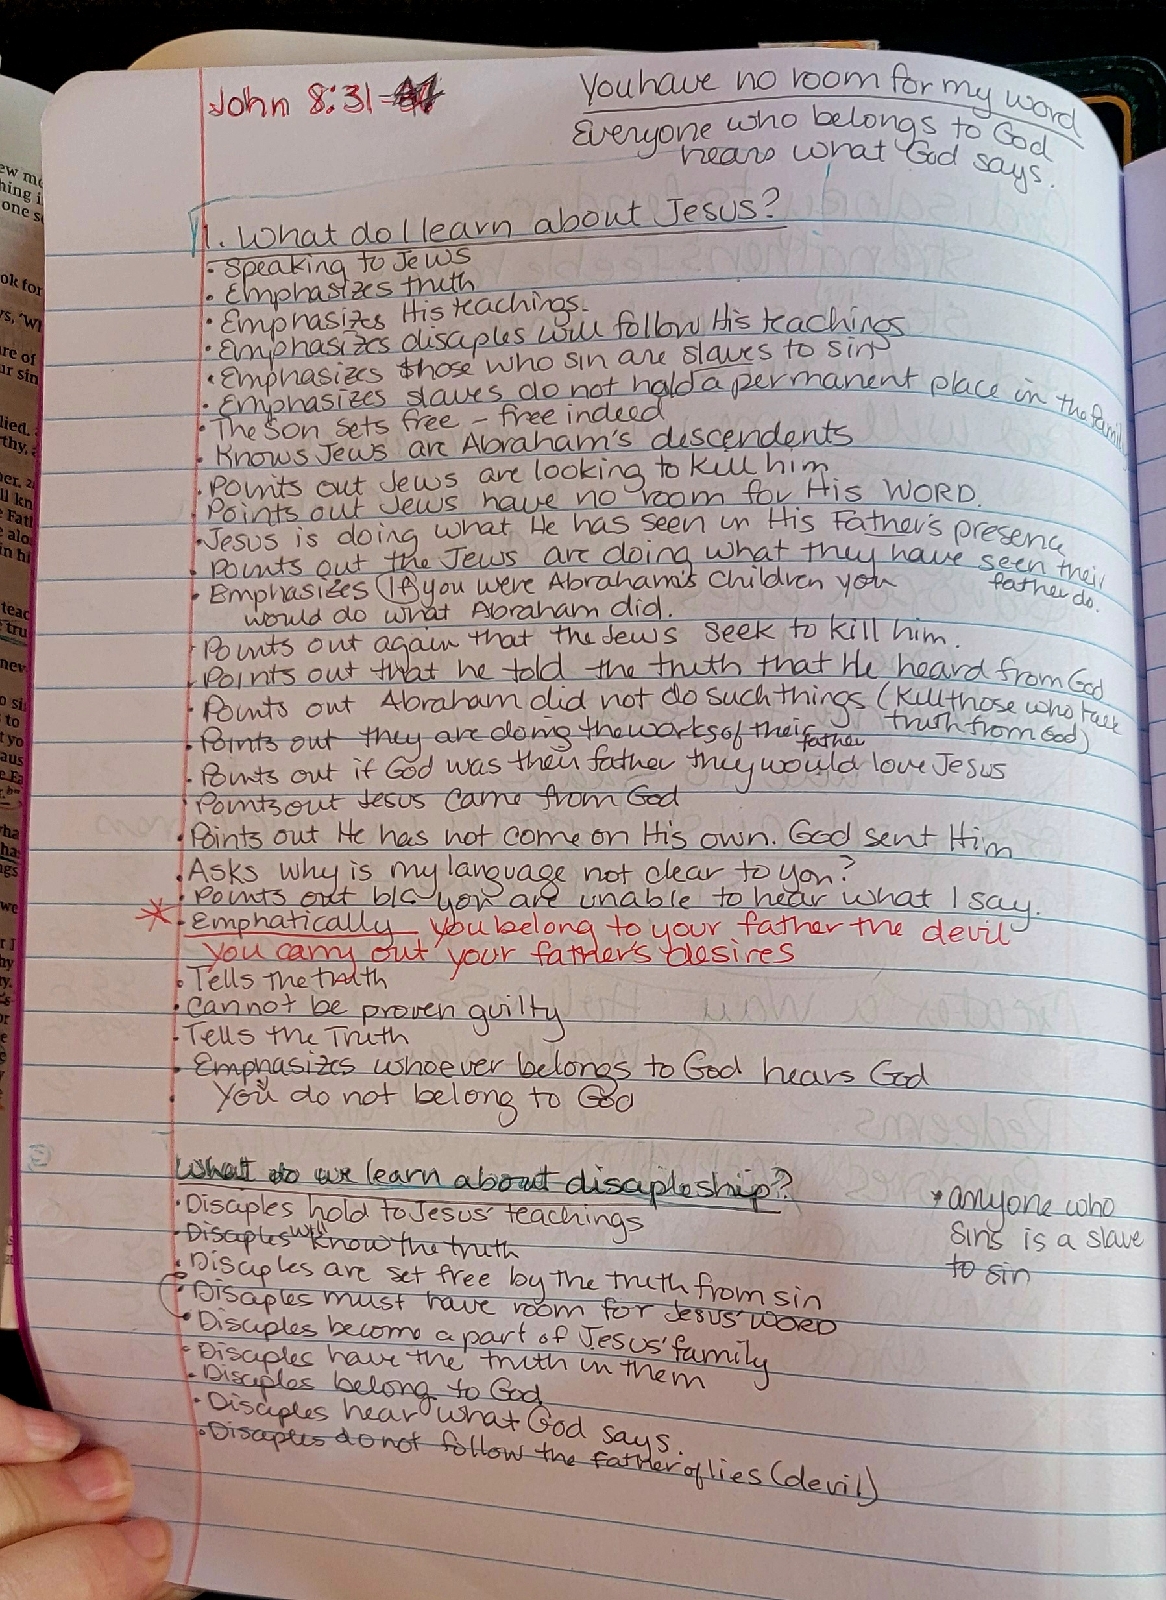 John 8:31-
You have no room for my word
Everyone who belongs to God
hears what God says.
1. What do I learn about Jesus?
• Speaking to Jews
• Emphasizes truth
• Emphasizes His teachings.
• Emphasizes disaples will follow His teachings
• Emphasizes those who sin are slaves to sin
• Emphasizes slaves do not hold a permanent place in the family
• The Son sets free - free indeed
• Knows Jews are Abraham's descendents
• Points out Jews are looking to kill him
• Points out Jews have no room for His WORD.
• Jesus is doing what He has seen in His Father's presence
• Points out the Jews are doing what they have seen their
father do.
• Emphasizes (If) you were Abraham's children you
would do what Abraham did.
• Points out again that the Jews seek to kill him.
• Points out that he told the truth that He heard from God
• Points out Abraham did not do such things (kill those who talk
truth from God)
• Points out they are doing the works of their
father
• Points out if God was their father they would love Jesus
• Points out Jesus came from God
• Points out He has not come on His own. God sent Him
• Asks why is my language not clear to you?
• Points out b/c you are unable to hear what I say.
* • Emphatically you belong to your father the devil
you carry out your father's desires
• Tells the truth
• Cannot be proven guilty
• Tells the Truth
• Emphasizes whoever belongs to God hears God
• You do not belong to God
What do we learn about discipleship?
• Disaples hold to Jesus' teachings
• Disaples will know the truth
• Disaples are set free by the truth from sin
• Disaples must have room for Jesus' WORD
• Disaples become a part of Jesus' family
• Disaples have the truth in them
• Disaples belong to God
• Disaples hear what God says.
• Disaples do not follow the father of lies (devil)
* anyone who
sins is a slave
to sin